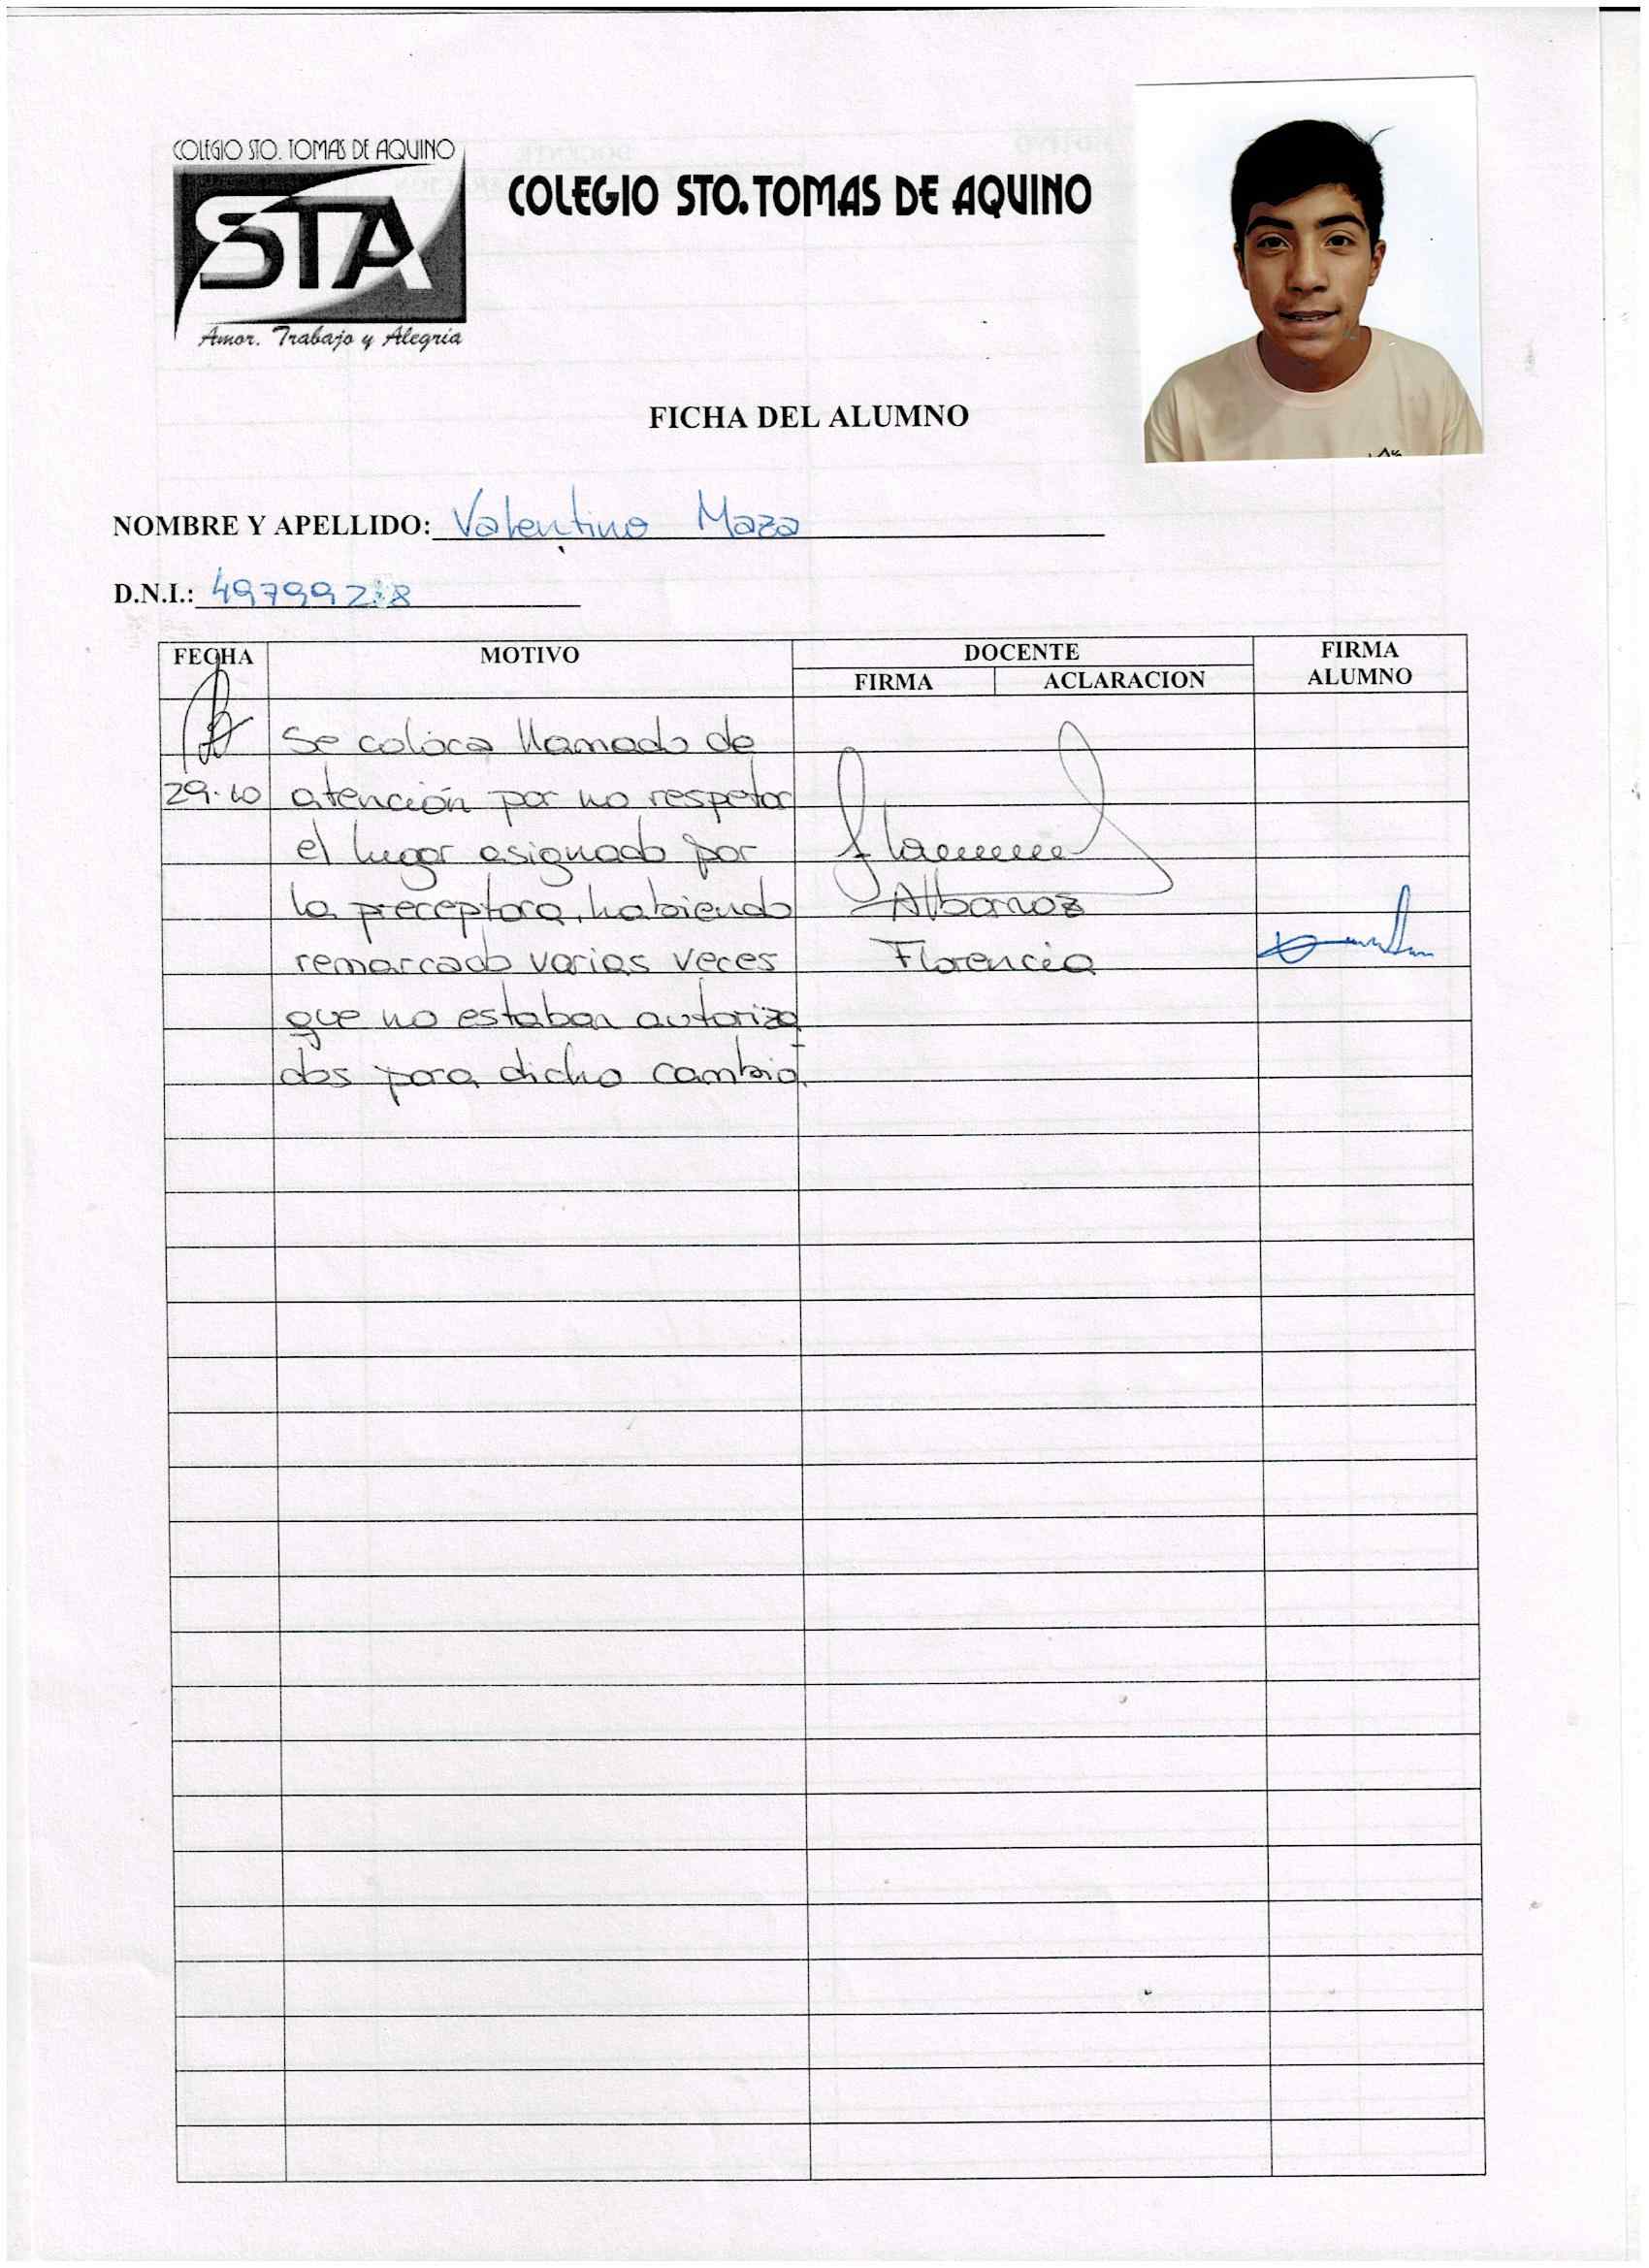 COLEGIO STO. TOMAS DE AQUINO
STA
Amor. Trabajo y Alegría
COLEGIO STO. TOMAS DE AQUINO
FICHA DEL ALUMNO
NOMBRE Y APELLIDO: Valentino Maza
D.N.I.: 49799
FECHA MOTIVO DOCENTE FIRMA ALUMNO
FIRMA ACLARACION
Se coloca llamado de
29-10 atención por no respetar
el lugar asignado por
la preceptora, habiendo Albornoz
remarcado varias veces Florencia
que no estaban autoriza
dos para dicho cambio.